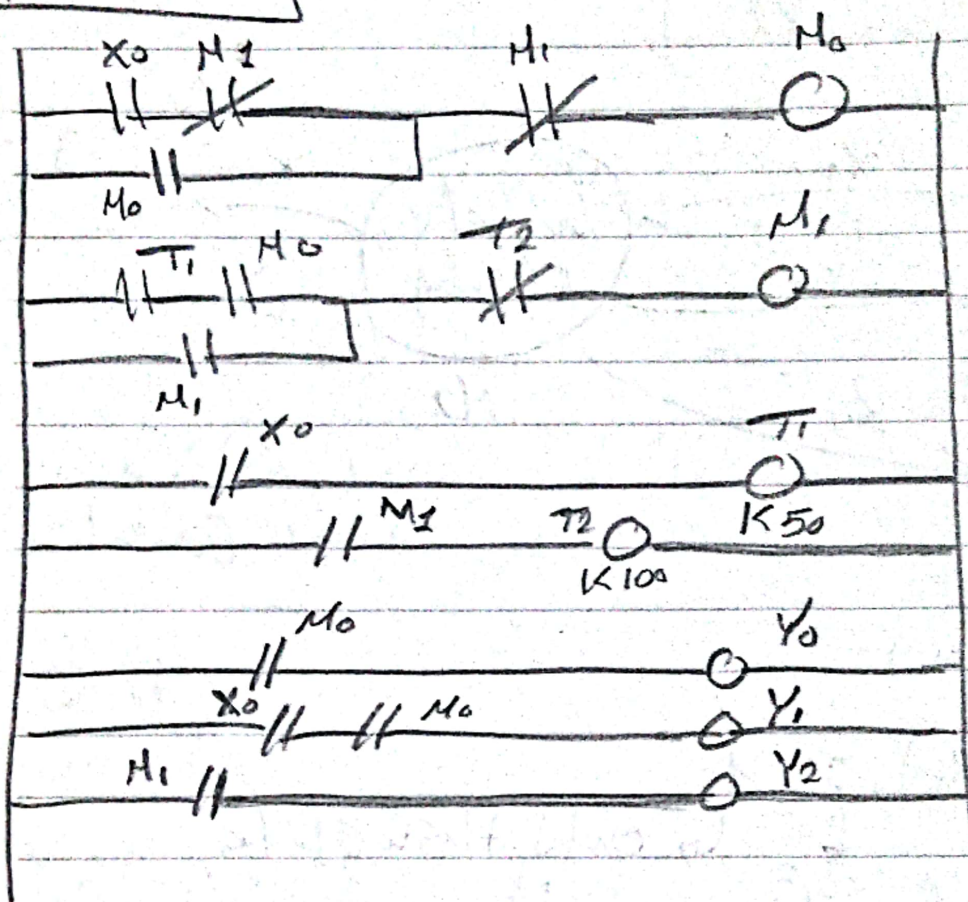 X0 M1 M1 M0
M0
T1 M0 T2 M1
M1
X0 T1
K50
M1 T2
K100
M0 Y0
X0 M0 Y1
M1 Y2